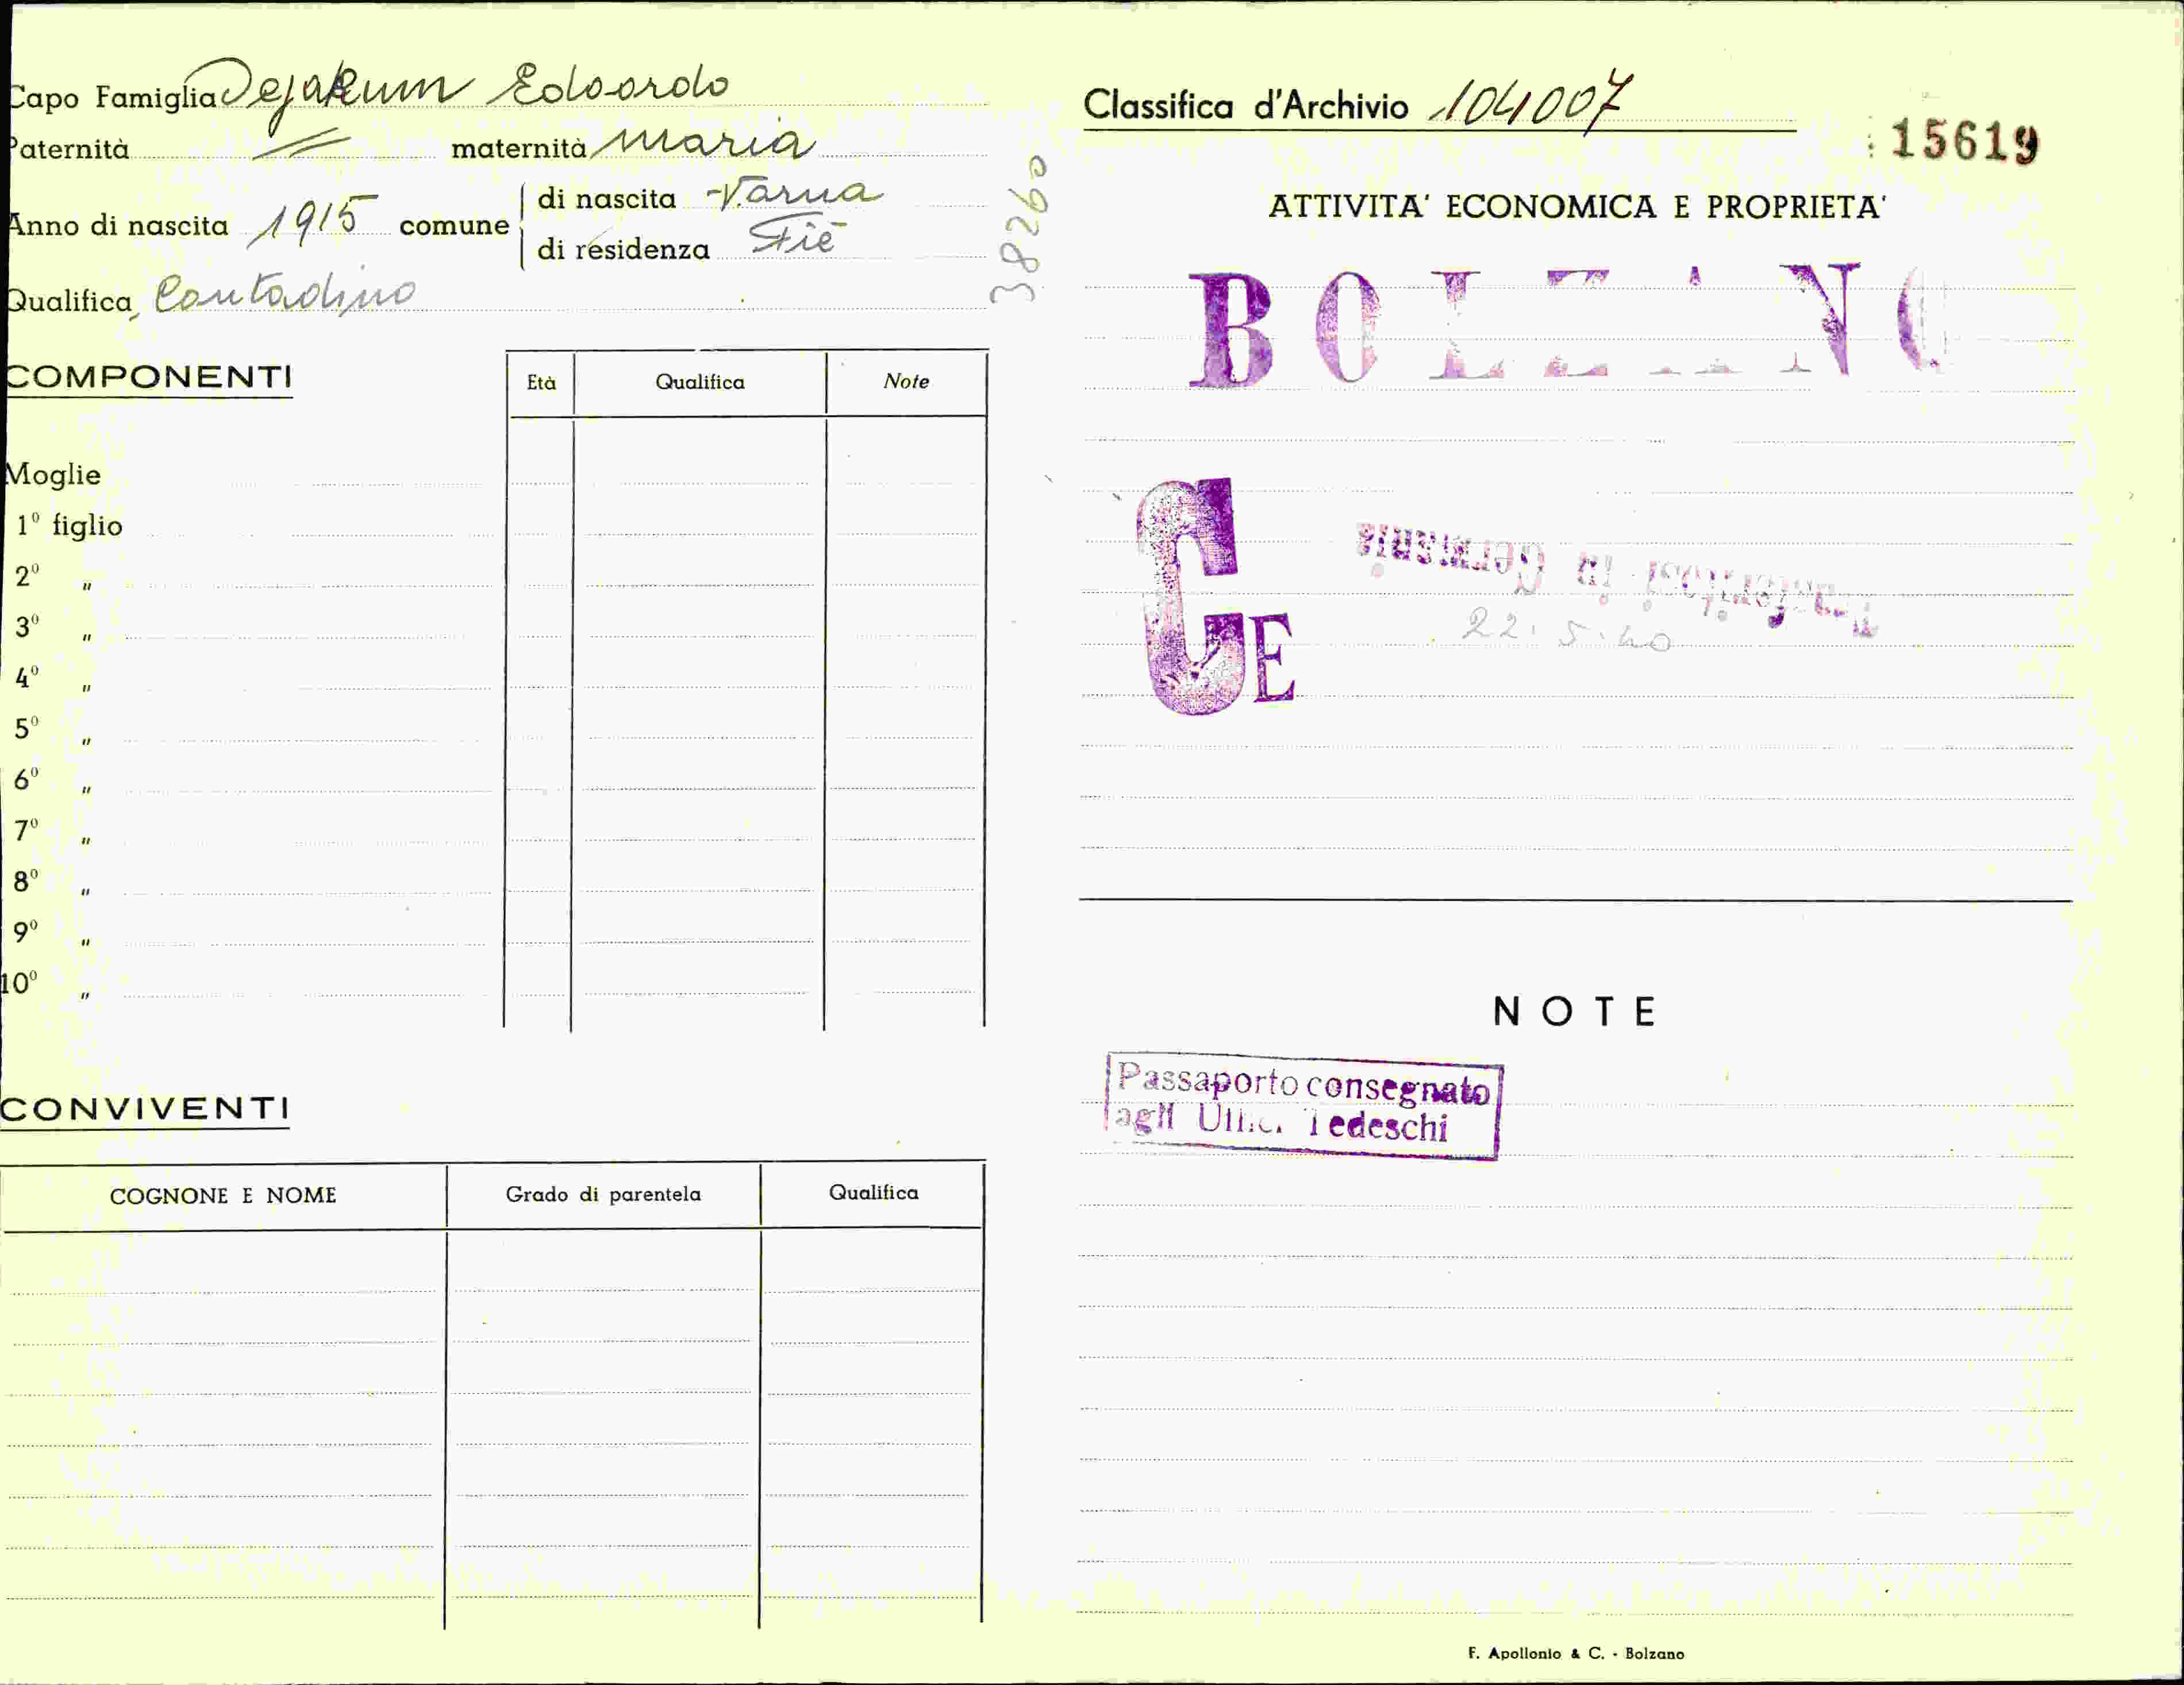 Capo Famiglia Dejakum Edoardo
Paternità = maternità Maria
Anno di nascita 1915 comune di nascita Varna
di residenza Fiè
Qualifica Contadino
38260
COMPONENTI
Età Qualifica Note
Moglie
1º figlio
2º "
3º "
4º "
5º "
6º "
7º "
8º "
9º "
10º "
CONVIVENTI
COGNONE E NOME Grado di parentela Qualifica
Classifica d'Archivio 104007
15619
ATTIVITA' ECONOMICA E PROPRIETA'
BOLZANO
CE
Trasferitosi in Germania
22.5.40
NOTE
Passaporto consegnato
agli Uffici Tedeschi
F. Apollonio & C. - Bolzano